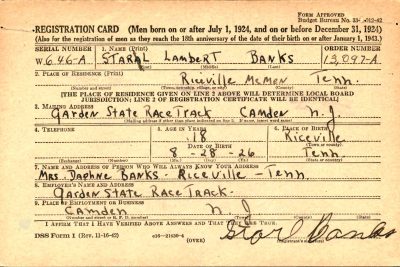 Form Approved
Budget Bureau No.
REGISTRATION CARD (Men born on or after July 1, 1924, and on or before December 31, 1924)
(Also for the registration of men as they reach the 18th anniversary of the date of their birth on or after January 1, 1943.)
SERIAL NUMBER
1. NAME (Print)
ORDER NUMBER
W 646-A
LAMBERT BANKS
13,097-A
(First) (Middle) (Last)
2. PLACE OF RESIDENCE (Print)
Riceville McMinn Tenn.
[THE PLACE OF RESIDENCE GIVEN ON LINE 2 ABOVE WILL DETERMINE LOCAL BOARD
JURISDICTION; LINE 2 OF REGISTRATION CERTIFICATE WILL BE IDENTICAL]
3. MAILING ADDRESS
Garden State Race Track Camden N.J.
4. TELEPHONE
5. AGE IN YEARS
6. PLACE OF BIRTH
18
Riceville
(Town or county)
DATE OF BIRTH
8 - 28 - 26
Tenn
(Exchange) (Number)
(Mo.) (Day) (Yr.)
(State or country)
7. NAME AND ADDRESS OF PERSON WHO WILL ALWAYS KNOW YOUR ADDRESS
Mrs. Daphne Banks - Riceville - Tenn.
8. EMPLOYER'S NAME AND ADDRESS
Garden State Race Track.
9. PLACE OF EMPLOYMENT OR BUSINESS
Camden N J
(Number and street or R. F. D. number) (Town) (County) (State)
I AFFIRM THAT I HAVE VERIFIED ABOVE ANSWERS AND THAT THEY ARE TRUE.
DSS Form 1 (Rev. 11-16-42)
(OVER)
Banks
(Registrant's signature)